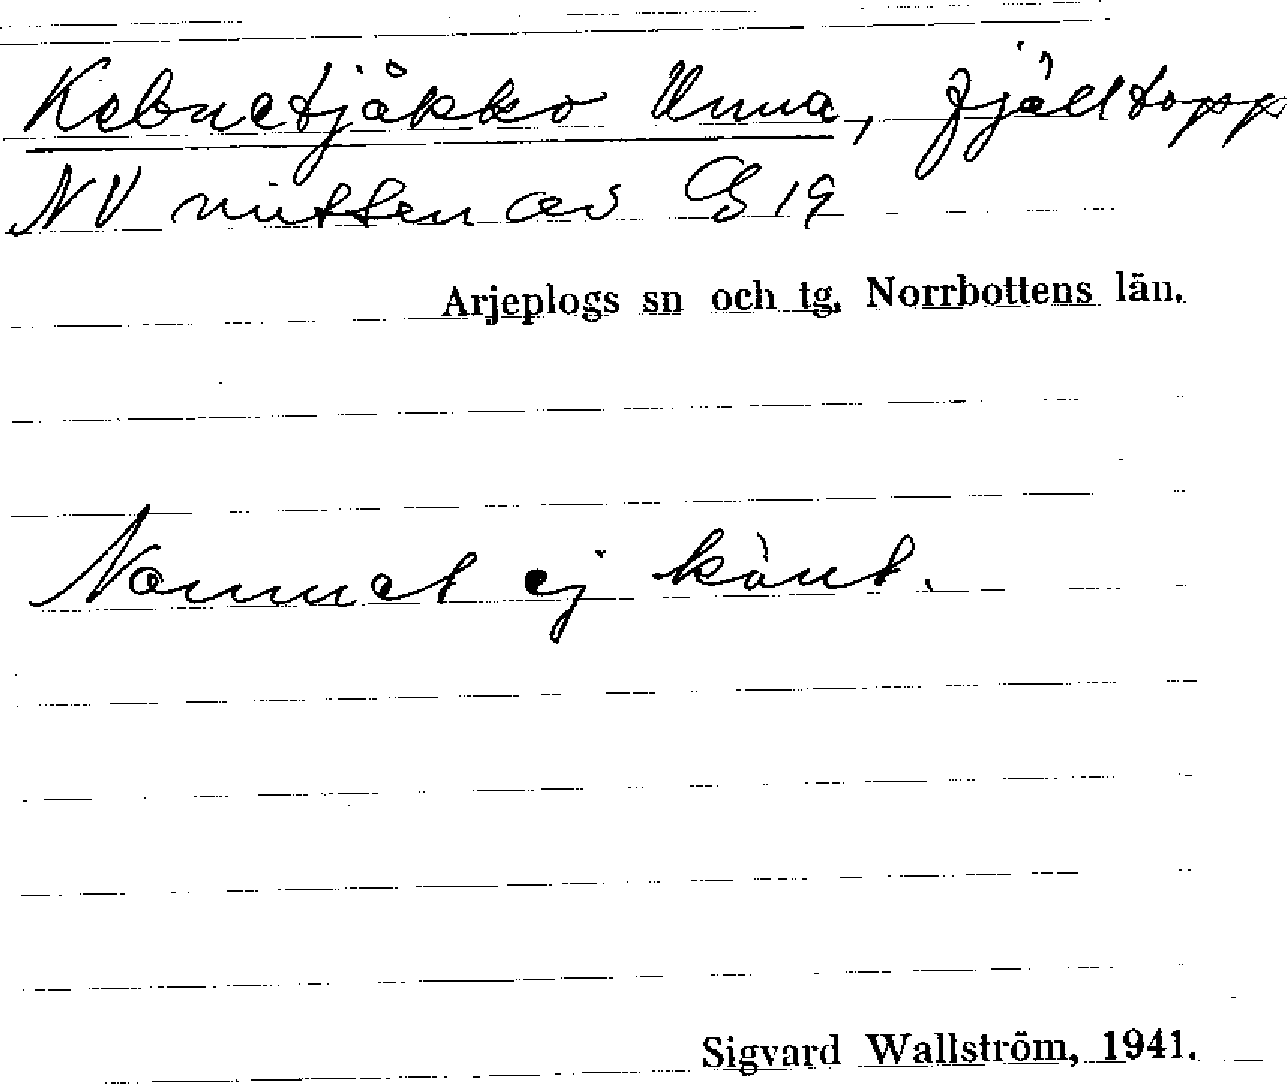 Kebnetjåkko Unna, fjälltopp
NV mitten av G 19
Arjeplogs sn och tg. Norrbottens län.
Namnet ej känt.
Sigvard Wallström, 1941.